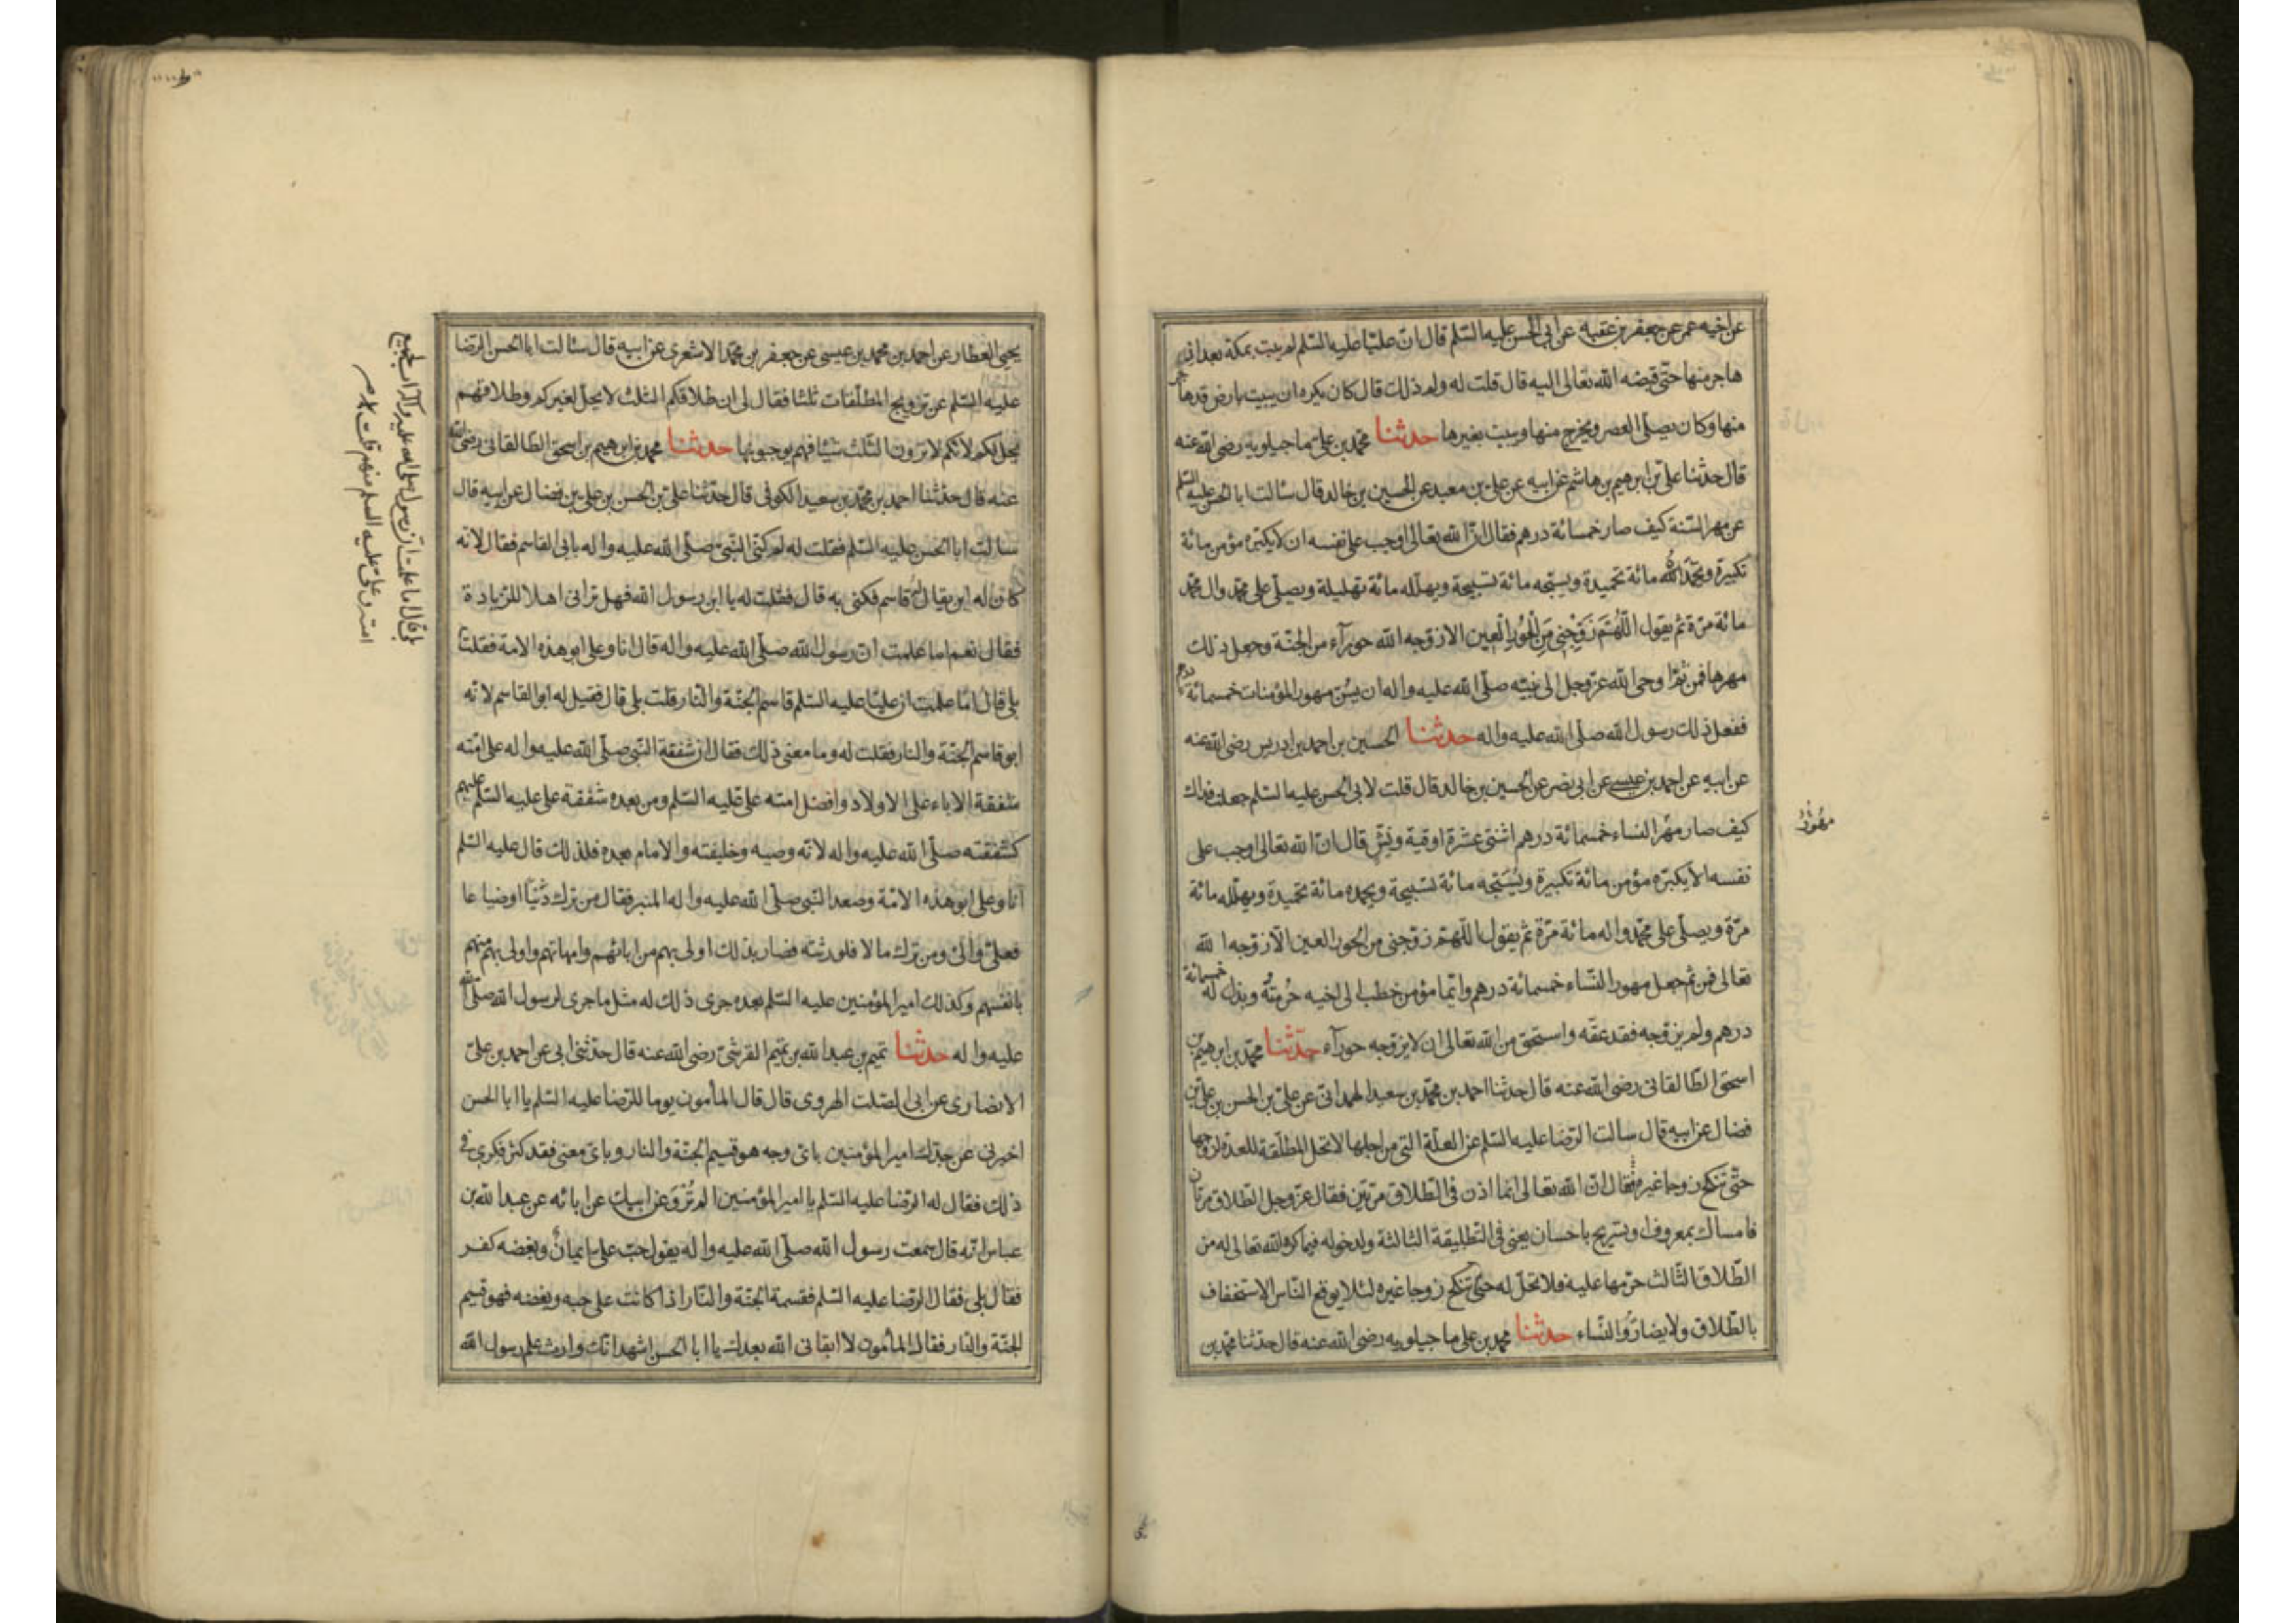 عن اخيه عمر عن جعفر بن عقبه عن ابي الحسن عليه السّلم قال انّ عليّا عليه السّلم لم يبت بمكة بعد ان
هاجر منها حتّى قبضه الله تعالى اليه قال قلت له ولم ذلك قال كان يكره ان يبيت بارض قد هاجر
منها وكان يصلّى العصر ويخرج منها ويبيت بغيرها حدثنا محمد بن علىّ ماجيلويه رضى الله عنه
قال حدّثنا علىّ بن ابرهيم بن هاشم عن ابيه عن علىّ بن معبد عن الحسين بن خالد قال سئالت ابا الحسن عليه السّلم
عن مهر السّنة كيف صار خمسمائة درهم فقال انّ الله تعالى اوجب على نفسه ان لا يكبّره مؤمن مائة
تكبيرة ويحمّد الله مائة تحميدة ويسبّحه مائة تسبيحة ويهلّله مائة تهليلة ويصلّى على محمّد وال محمّد
مائة مرّة ثم يقول اللّهُمّ زَوّجْنِى مِنَ الْحُورِ الْعِينِ الا زوّجه الله حورآء من الجنّة وجعل ذلك
مهرها فمن ثمّ اوحى الله عزّ وجل الى نبيّه صلّى الله عليه واله ان يسُنّ مهور المؤمنات خمسمائة درهم
ففعل ذلك رسول الله صلّى الله عليه واله حدثنا الحسين بن احمد بن ادريس رضى الله عنه
عن ابيه عن احمد بن عيسى عن ابى نصر عن الحسين بن خالد قال قلت لابى الحسن عليه السّلم جعلت فداك
كيف صار مهر النساء خمسمائة درهم اثنتى عشرة اوقية ونشّ قال انّ الله تعالى اوجب على
مهُورُ
نفسه الا يكبّره مؤمن مائة تكبيرة ويُسَبّحه مائة تسبيحة ويحمده مائة تحميدة ويهلّله مائة
مرّة ويصلّى على محمّد واله مائة مرّة ثم يقول اللّهمّ زوّجنى من الحور العين الّا زوّجه الله
تعالى فمن ثم جعل مهور النّساء خمسمائة درهم وايّما مؤمن خطب الى اخيه حُرمتُه وبذل له خمسمائة
درهم ولم يزوّجه فقد عقّه واستحق من الله تعالى ان لا يزوّجه حورآء حدّثنا محمّد بن ابرهيم بن
اسحق الطّالقانى رضى الله عنه قال حدثنا احمد بن محمّد بن سعيد الهمدانى عن علىّ بن الحسن بن علىّ بن
فضال عن ابيه قال سالت الرّضا عليه السّلم عن العلّة التى من اجلها لا تحل المطلّقة للعدة لزوجها
حتّى تنكح زوجا غيره فقال انّ الله تعالى انما اذن فى الطّلاق مرّتين فقال عزّ وجل الطّلاق مرّتان
فامساك بمعروف او تسريح باحسان يعنى فى التطليقة الثالثة ولدخوله فيما كره الله تعالى له من
الطّلاق الثّالث حرّمها عليه فلا تحلّ له حتّى تنكح زوجا غيره لئلا يوقع النّاس الاستخفاف
بالطّلاق ولا يضارّوا النّساء حدثنا محمد بن على ماجيلويه رضى الله عنه قال حدّثنا محمّد بن
يحيى العطار عن احمد بن محمد بن عيسى عن جعفر بن محمّد الاشعرى عن ابيه قال سئالت ابا الحسن الرّضا
عليه السّلم عن تزويج المطلّقات ثلثا فقال لى ان طلاقكم الثلث لا يحل لغيركم وطلاقهم
يحل لكم لانّكم لا ترون الثّلث شيئا وهم يوجبونها حدثنا محمد بن ابرهيم بن اسحق الطّالقانى رضى الله
عنه قال حدّثنا احمد بن محمّد بن سعيد الكوفى قال حدّثنا علىّ بن الحسن بن على بن فضال عن ابيه قال
سالت ابا الحسن عليه السّلم فقلت له لم كنّى النّبىّ صلّى الله عليه واله بابى القاسم فقال لانّه
كان له ابن يقال له قاسم فكنى به قال فقلت له يا ابن رسول الله فهل ترانى اهلا للزّيادة
فقال نعم اما علمت انّ رسول الله صلّى الله عليه واله قال انا وعلى ابو هذه الامة فقلت
بلى قال امّا علمت انّ عليّا عليه السّلم قاسم الجنّة والنّار قلت بلى قال فقيل له ابو القاسم لانّه
بلى قال اما علمت انّ رسول الله صلى الله عليه وآله اب لجميع
امته وعلىّ عليه السلم منهم قلت
ابو قاسم الجنّة والنار فقلت له وما معنى ذلك فقال انّ شفقة النّبى صلّى الله عليه واله على امّته
شفقة الاباء على الاولاد وافضل امته علىّ عليه السّلم ومن بعده شفقة على عليه السّلم عليهم
كشفقته صلّى الله عليه واله لانّه وصيه وخليفته والامام بعده فلذلك قال عليه السّلم
انا وعلى ابو هذه الامّة وصعد النّبى صلّى الله عليه واله المنبر فقال من ترك دَيْنًا او ضياعا
فعلىّ والىّ ومن ترك مالا فلورثته فصار بذلك اولى بهم من ابائهم وامهاتهم واولى بهم منهم
بانفسهم وكذلك امير المؤمنين عليه السّلم بعده جرى ذلك له مثل ما جرى لرسول الله صلّى الله
عليه واله حدثنا تميم بن عبد الله بن تميم القرشىّ رضى الله عنه قال حدّثنى ابى عن احمد بن علىّ
الانصارى عن ابى الصّلت الهروى قال قال المأمون يوما للرّضا عليه السّلم يا ابا الحسن
اخبرنى عن جدّك امير المؤمنين باىّ وجه هو قسيم الجنّة والنار وباىّ معنى فقد كثر فكرى فى
ذلك فقال له الرّضا عليه السّلم يا امير المؤمنين الم تُرْوَ عن ابيك عن ابائه عن عبد الله بن
عباس انّه قال سمعت رسول الله صلّى الله عليه واله يقول حبّ علىّ ايمانٌ وبغضه كفر
فقال بلى فقال الرّضا عليه السّلم فقسمة الجنّة والنّار اذا كانت على حبه وبغضه فهو قسيم
الجنّة والنّار فقال المأمون لا ابقانى الله بعدك يا ابا الحسن اشهد انّك وارث علم رسول الله